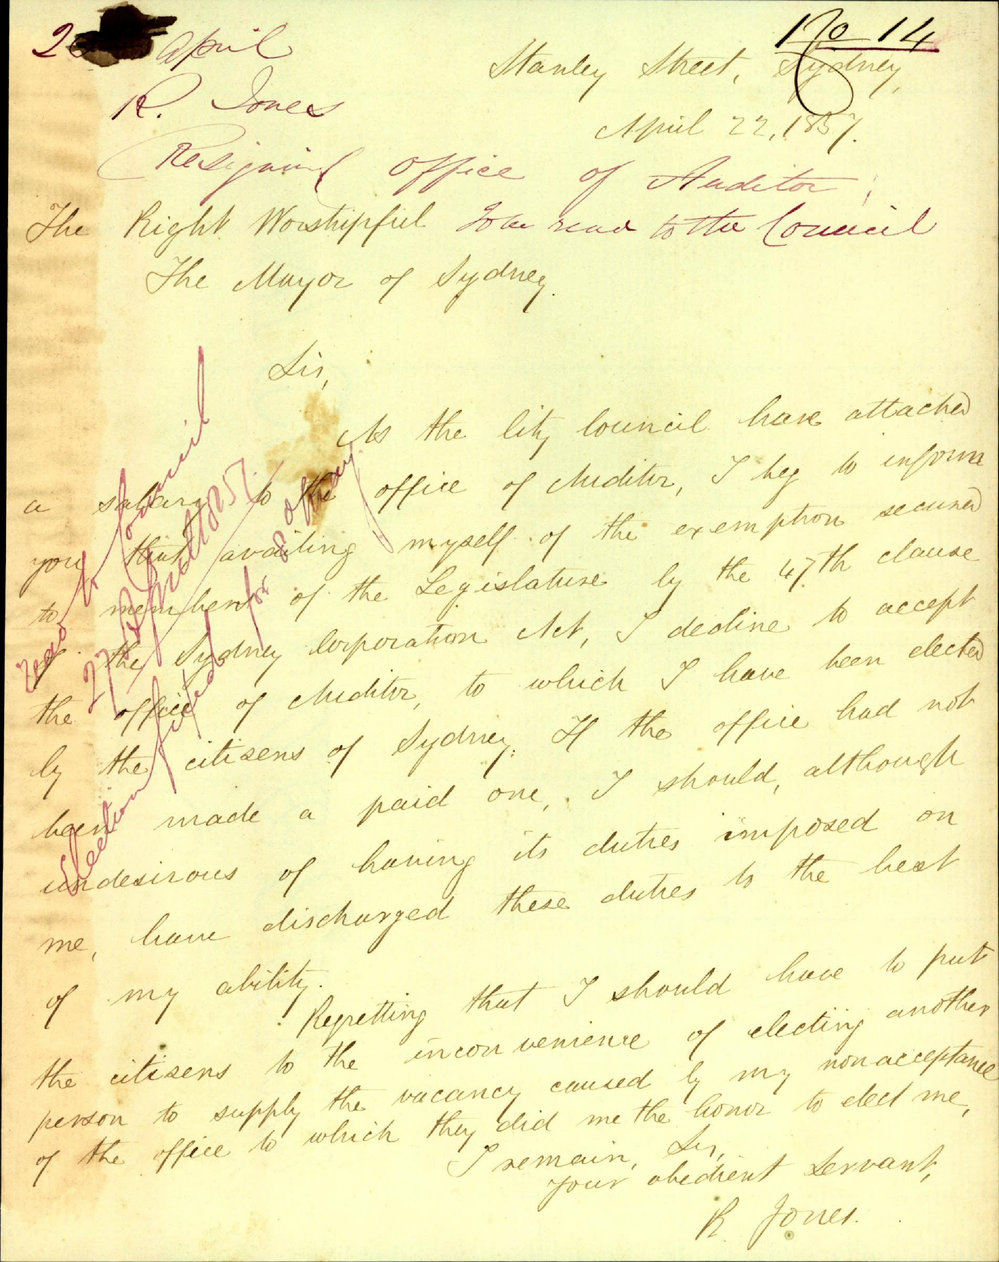 No 14
April
R. Jones
Resigning office of Auditor
To be read to the Council
Stanley Street, Sydney,
April 22, 1857.
The Right Worshipful
The Mayor of Sydney.
Sir,
As the City Council have attached
a salary to the office of Auditor, I beg to inform
you that availing myself of the exemption secured
to members of the Legislature by the 47th clause
of the Sydney Corporation Act, I decline to accept
the office of Auditor, to which I have been elected
by the citizens of Sydney. If the office had not
been made a paid one, I should, although
undesirous of having its duties imposed on
me, have discharged these duties to the best
of my ability.
Regretting that I should have to put
the citizens to the inconvenience of electing another
person to supply the vacancy caused by my nonacceptance
of the office to which they did me the honor to elect me,
I remain, Sir,
Your obedient Servant,
R. Jones.
Read to Council
27
Election fixed for 8 May.